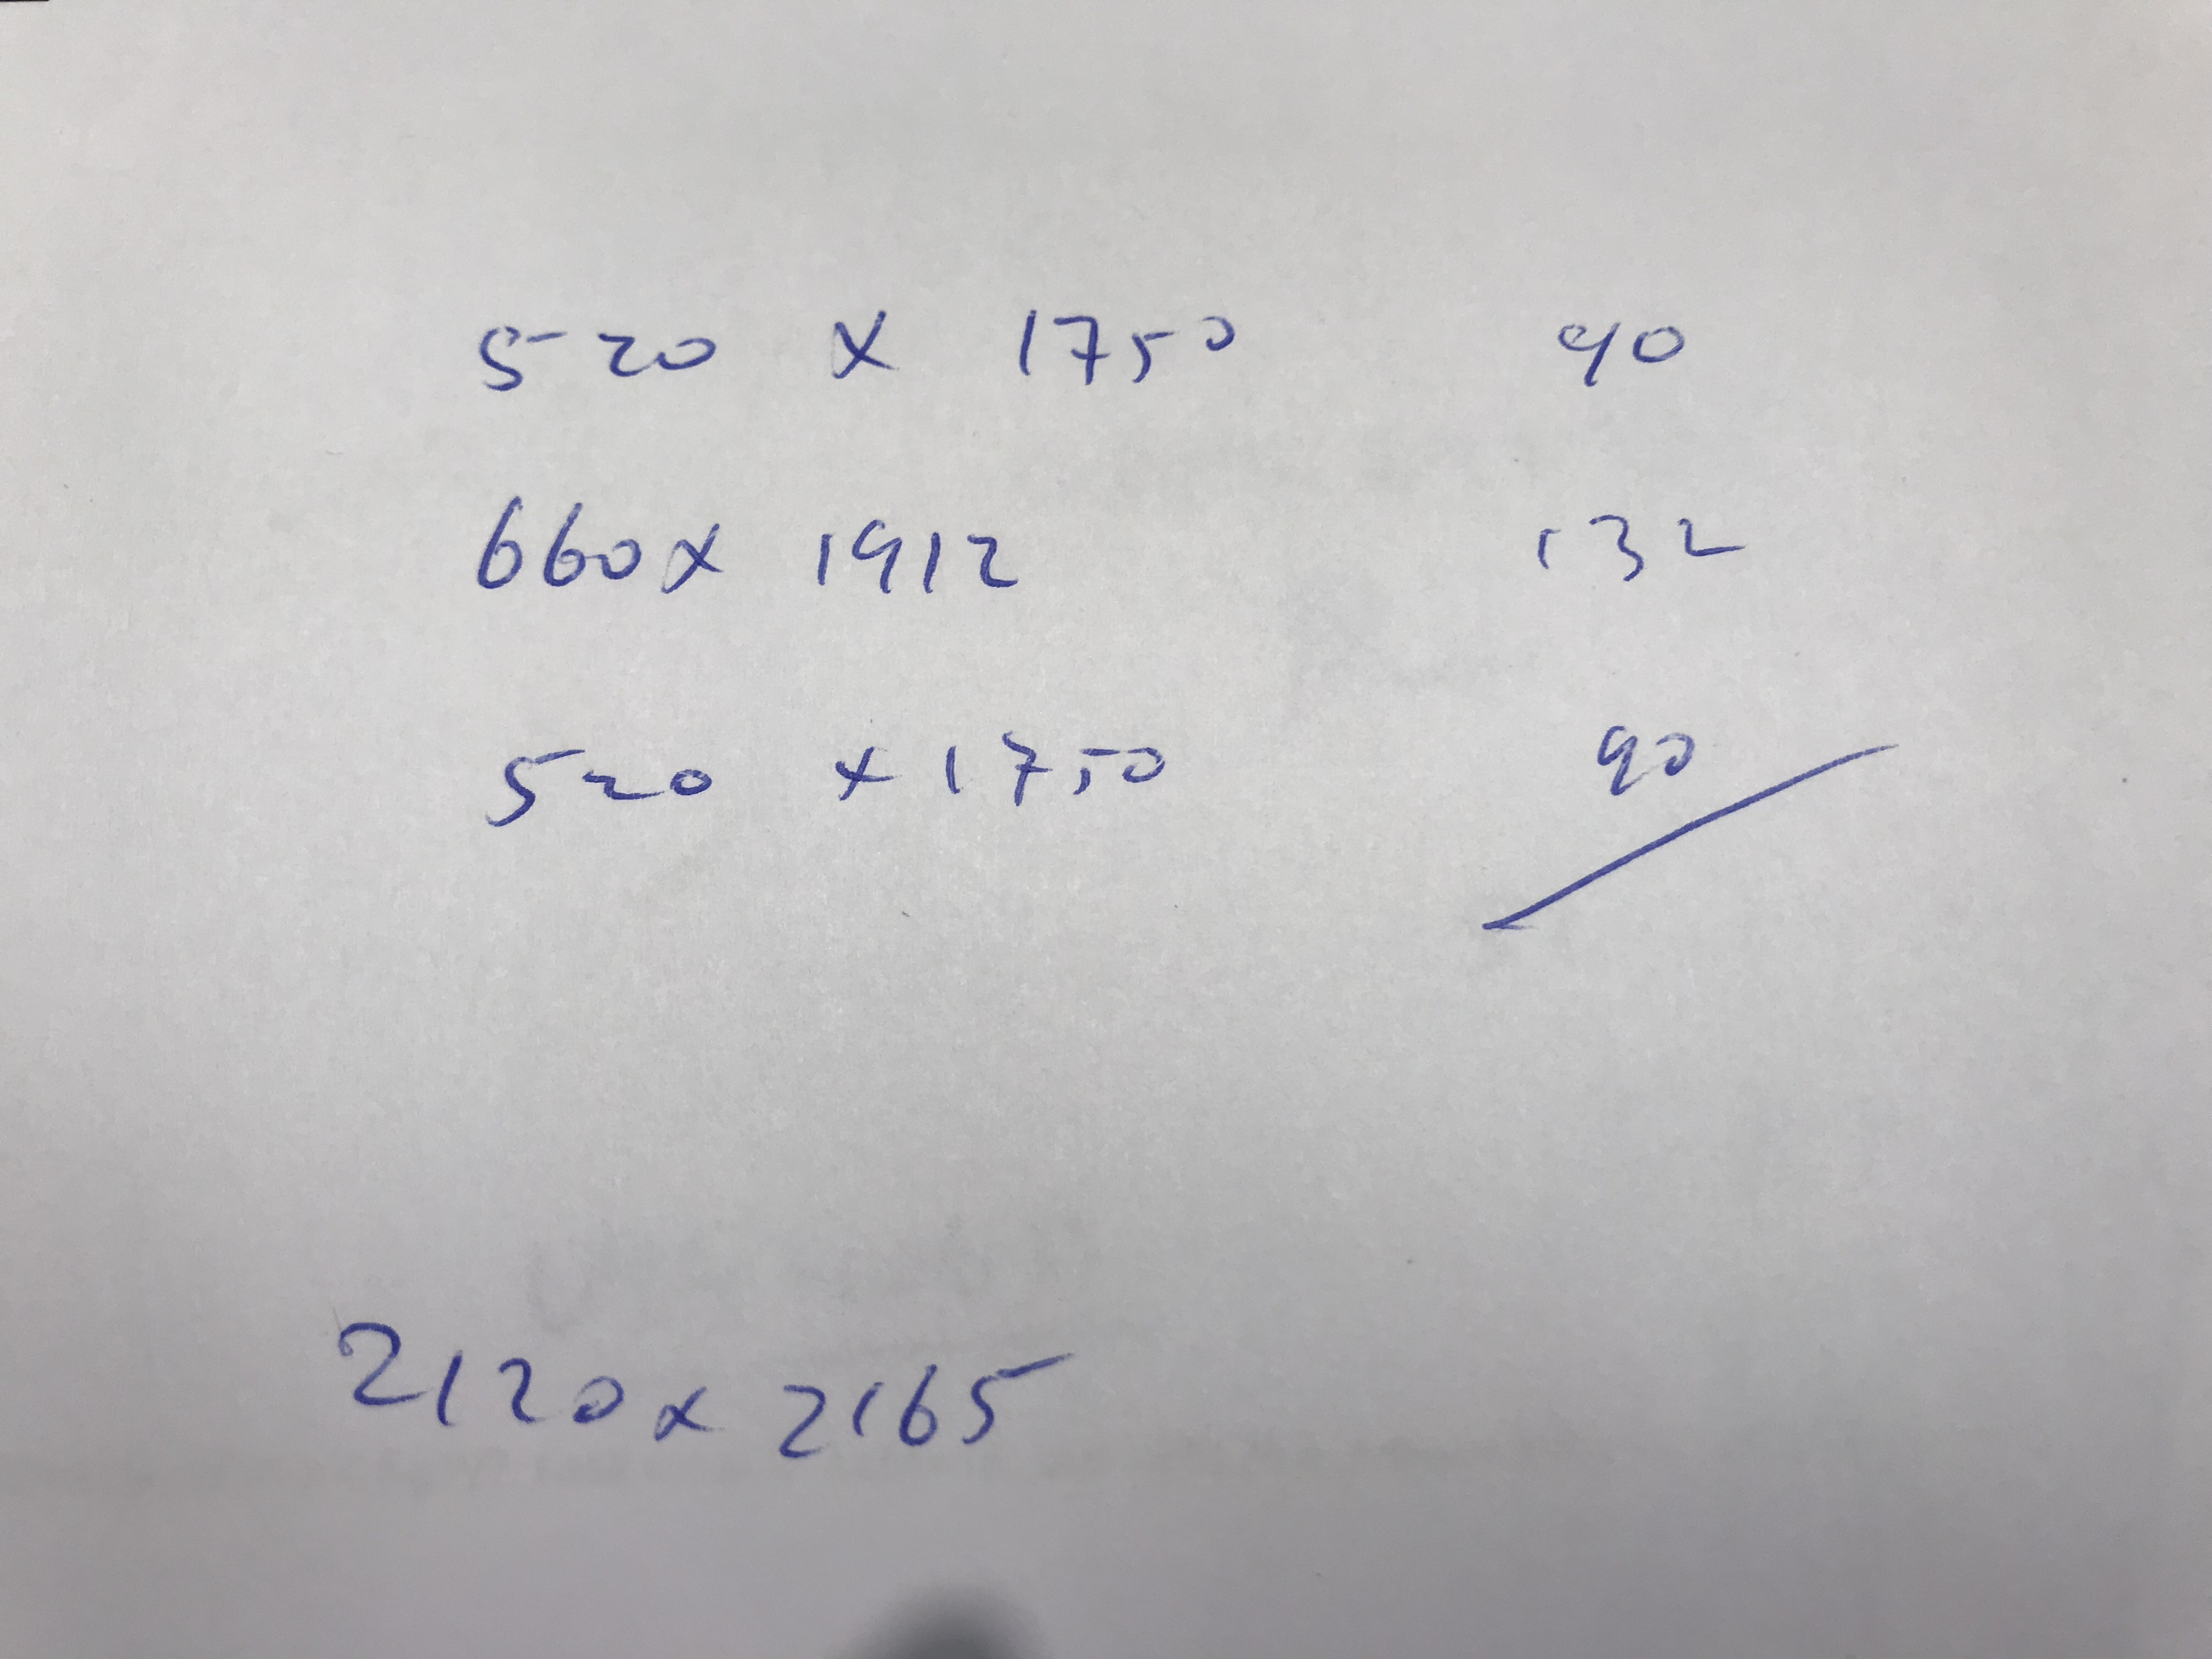 520 x 1750 90
660 x 1912 132
520 x 1750 90
2120 x 2165